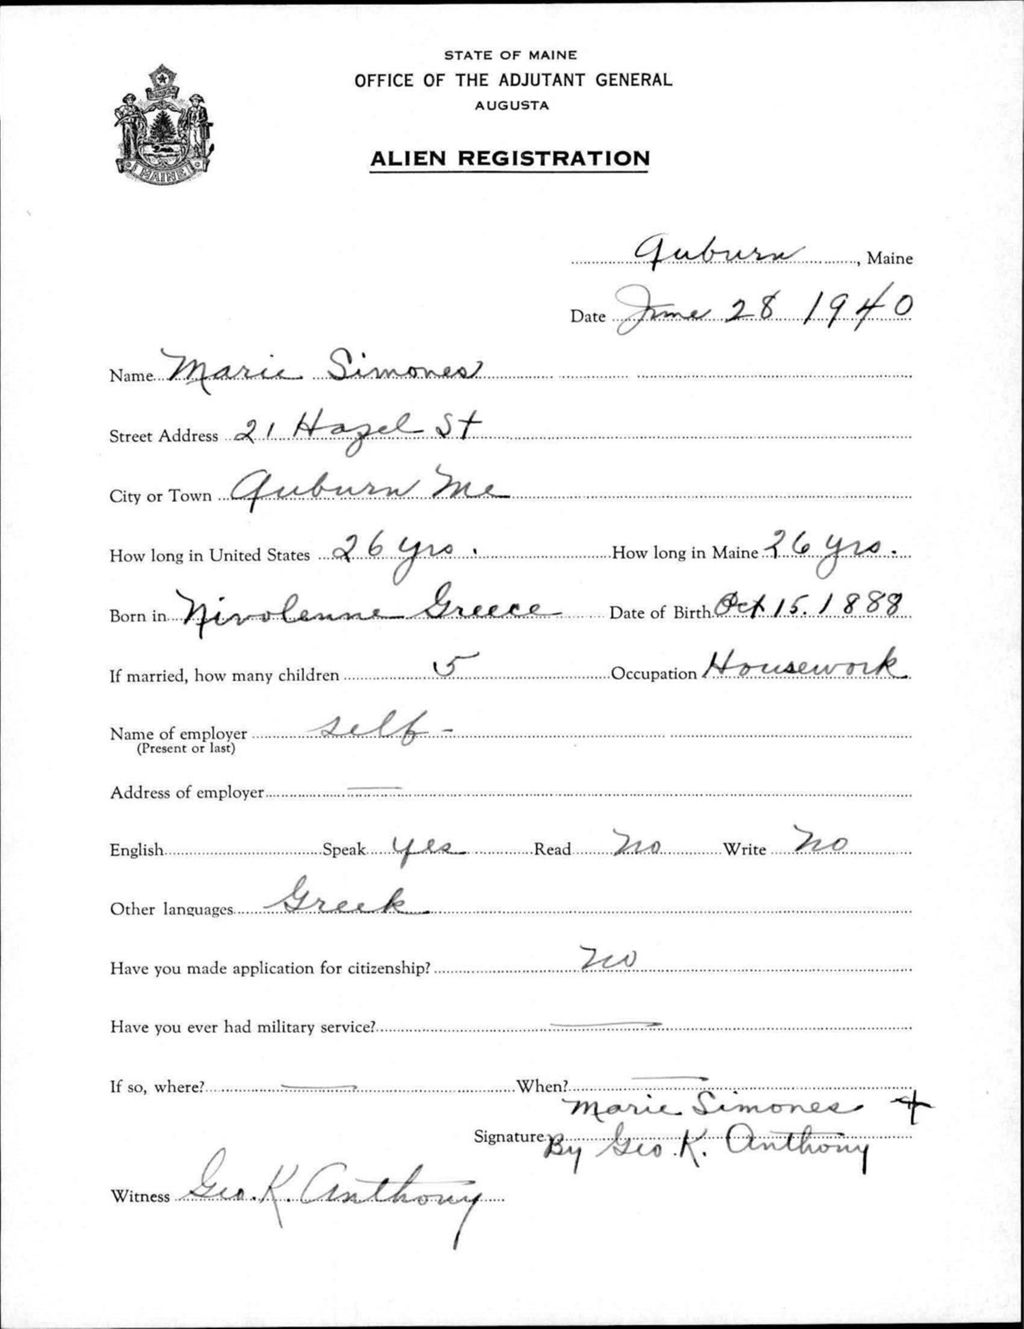 STATE OF MAINE
OFFICE OF THE ADJUTANT GENERAL
AUGUSTA
ALIEN REGISTRATION
MAINE
Auburn, Maine
Date June 28 1940
Name Marie Simones
Street Address 21 Hazel St
City or Town Auburn Me
How long in United States 26 yrs. How long in Maine 26 yrs.
Born in Greece Date of Birth Oct 15. 1888
If married, how many children 5 Occupation Housework
Name of employer self -
(Present or last)
Address of employer —
English Speak yes Read No Write No
Other languages Greek
Have you made application for citizenship? No
Have you ever had military service? —
If so, where? — When? —
Marie Simones +
Signature By Geo. K. Anthony
Witness Geo. K. Anthony